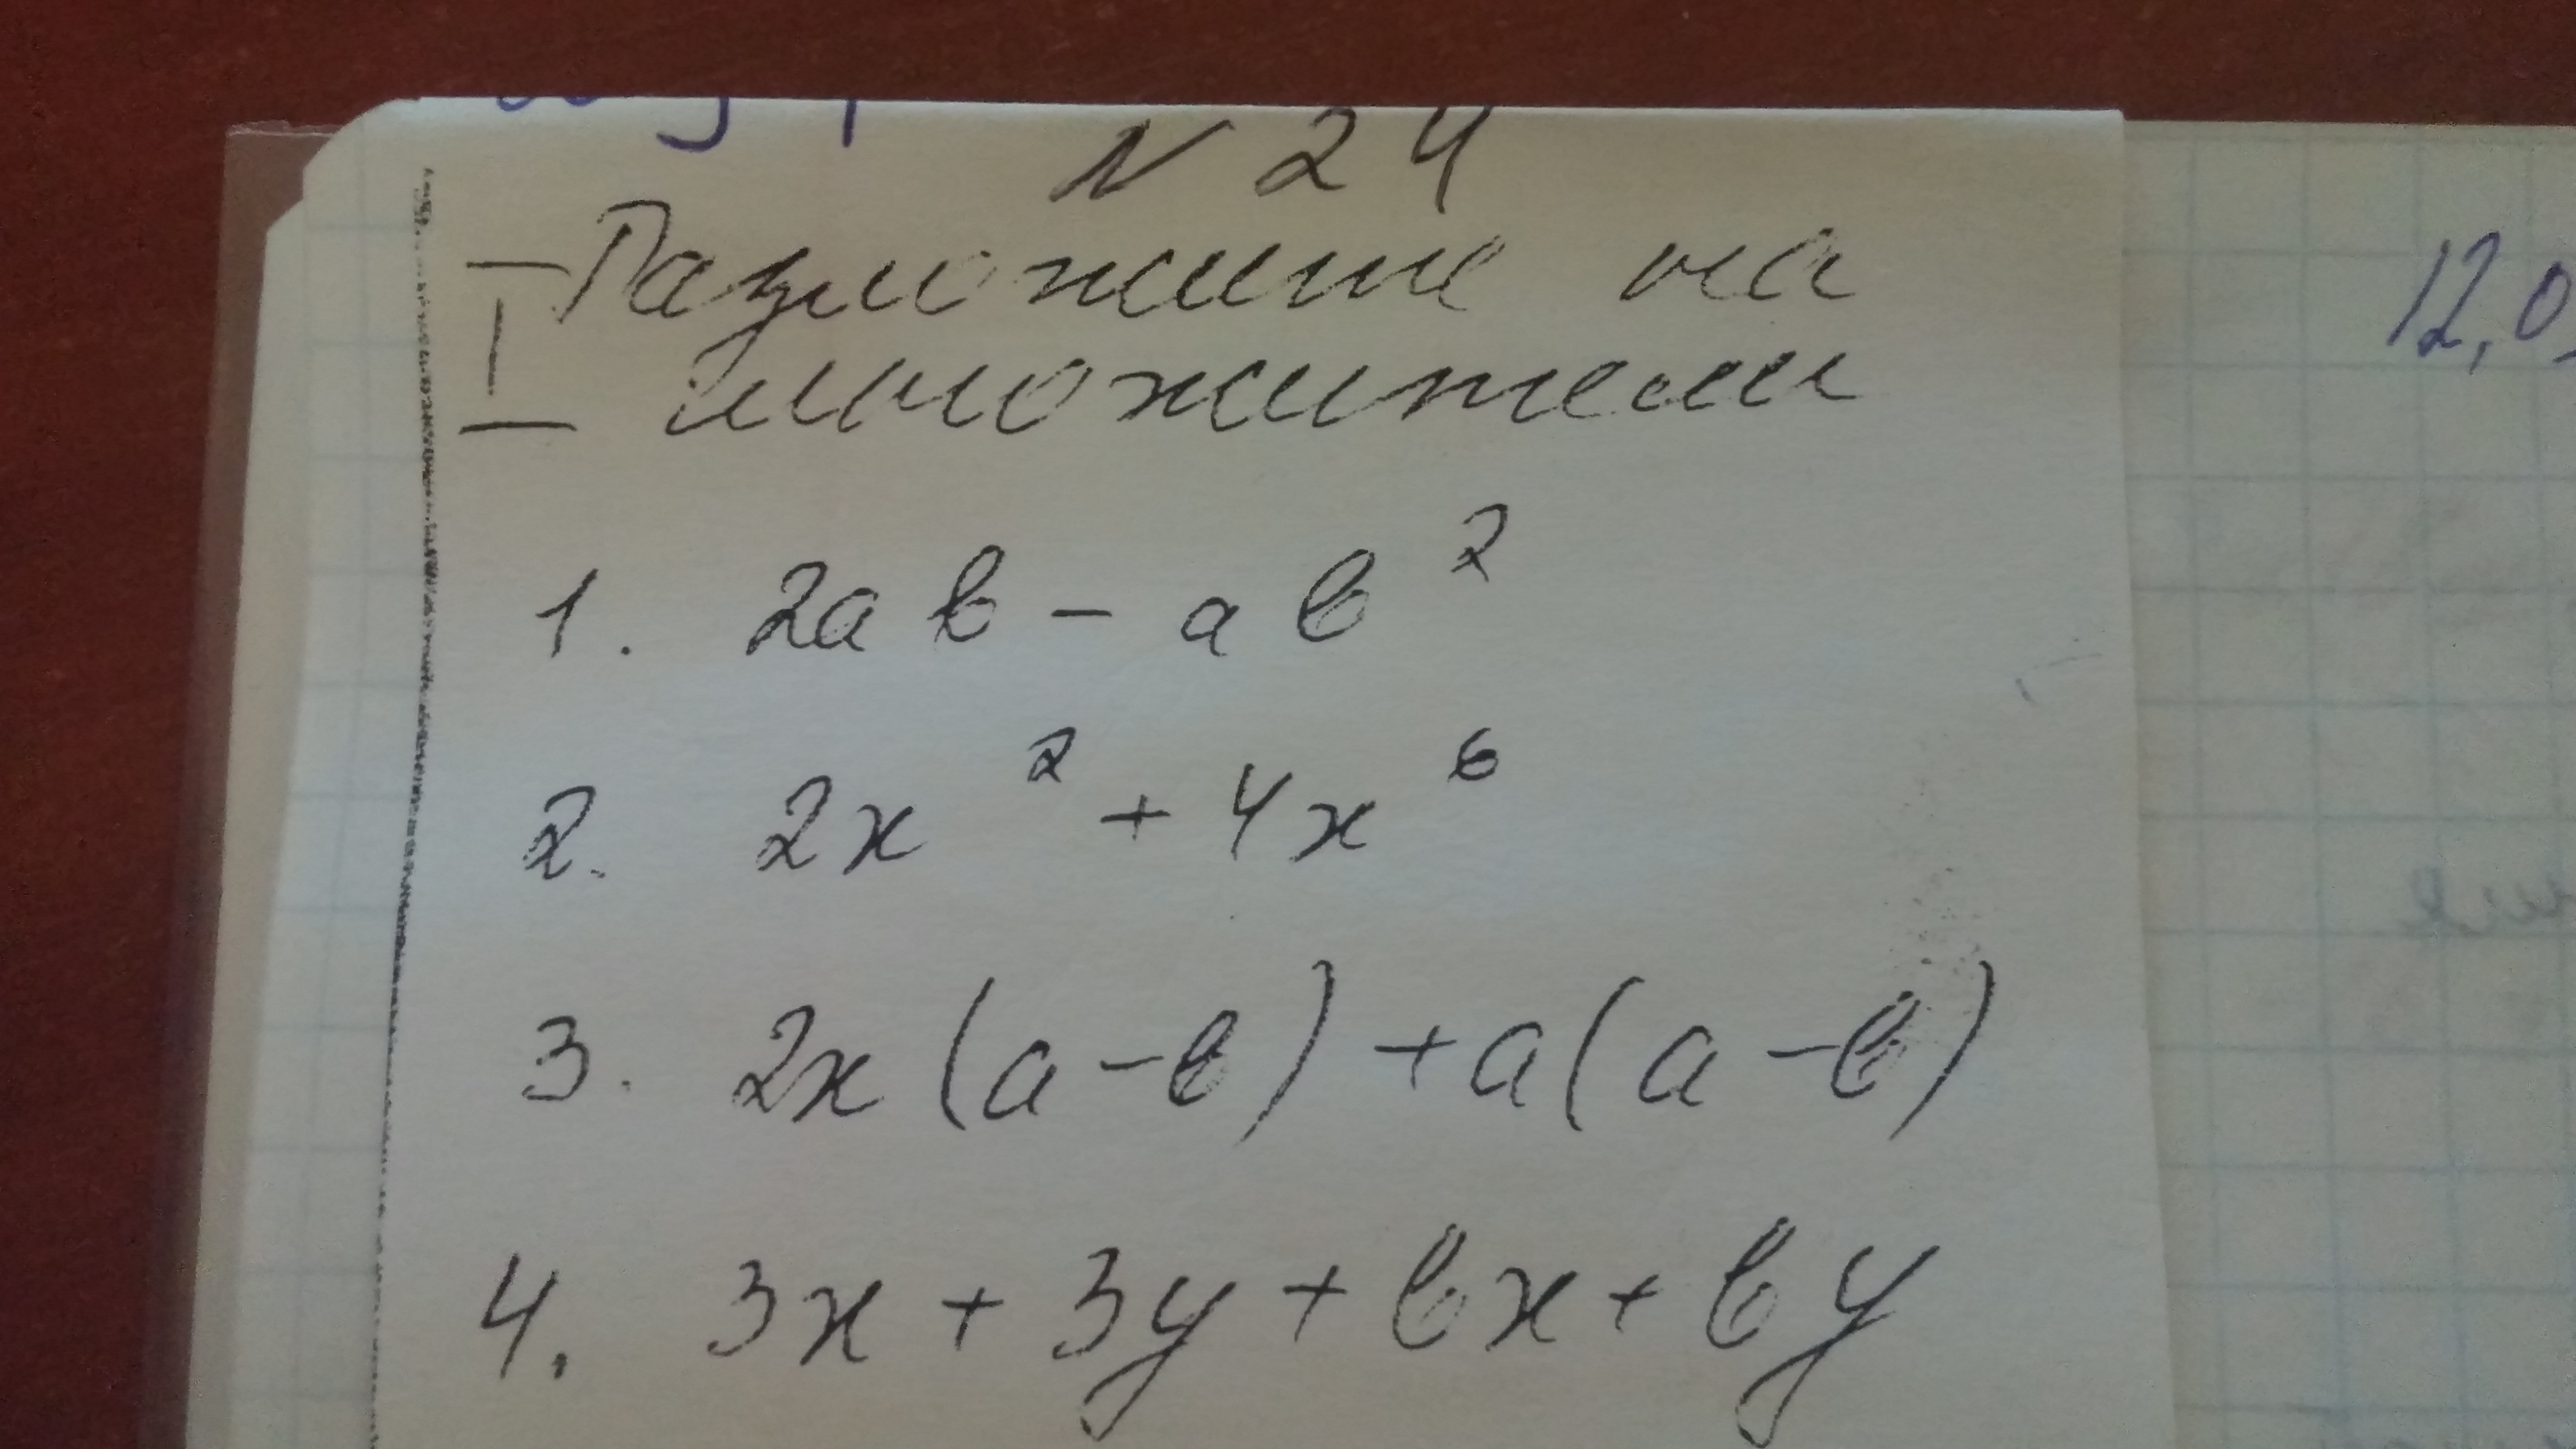 N 24
I Разложите на
множители
1. 2ab - ab²
2. 2x² + 4x⁶
3. 2x(a-b)+a(a-b)
4. 3x + 3y + bx + by
12,0